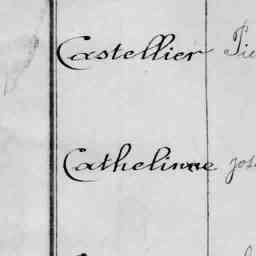 Castellier Pie
Cathelinne jos